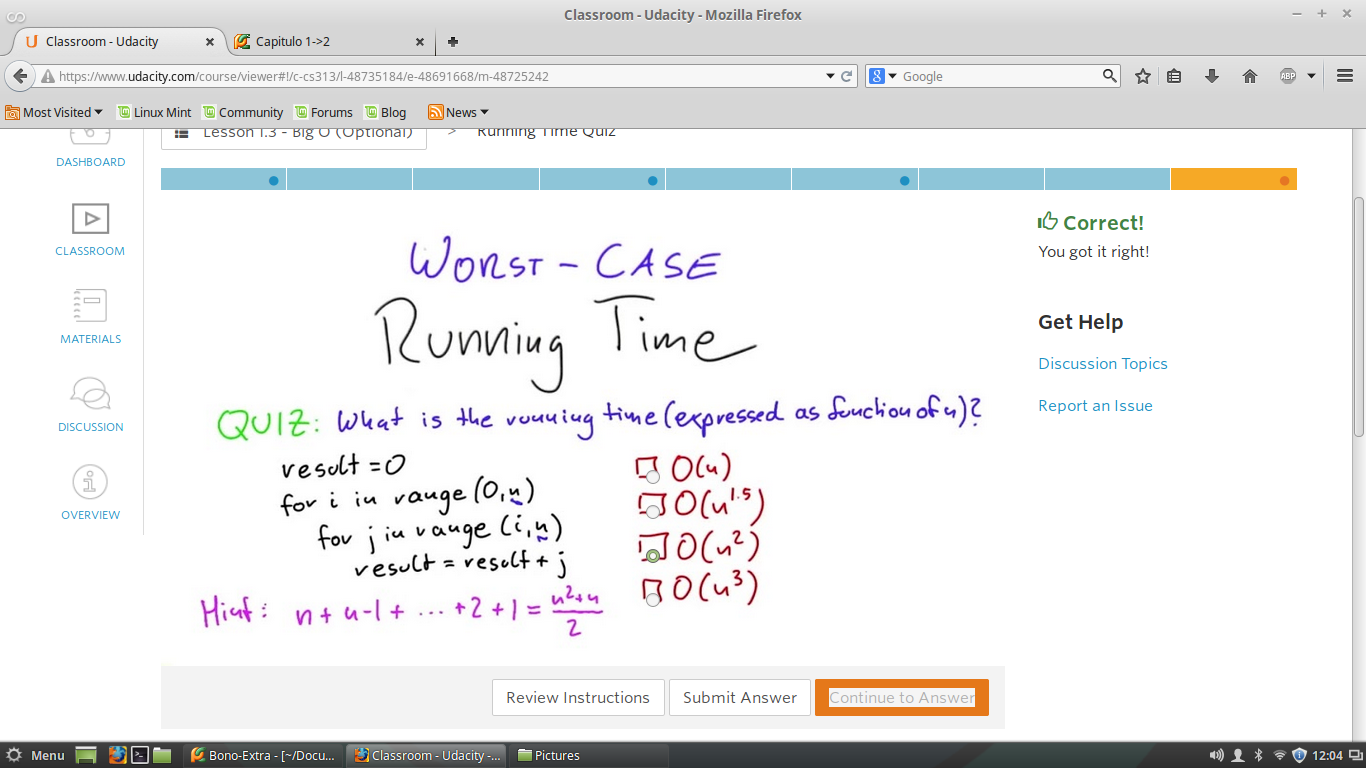 Classroom - Udacity - Mozilla Firefox
Classroom - Udacity
Capitulo 1->2
https://www.udacity.com/course/viewer#!/c-cs313/l-48735184/e-48691668/m-48725242
Google
ABP
Most Visited
Linux Mint
Community
Forums
Blog
News
Lesson 1.3 - Big O (Optional) > Running Time Quiz
DASHBOARD
CLASSROOM
MATERIALS
DISCUSSION
OVERVIEW
WORST - CASE
Running Time
QUIZ: What is the running time (expressed as function of n)?
result = 0
for i in range (0, n)
for j in range (i, n)
result = result + j
O(n)
O(n^1.5)
O(n^2)
O(n^3)
Hint: n + n-1 + ... + 2 + 1 = n^2+n / 2
Correct!
You got it right!
Get Help
Discussion Topics
Report an Issue
Review Instructions
Submit Answer
Continue to Answer
Menu
Bono-Extra - [~/Docu...
Classroom - Udacity -...
Pictures
12:04